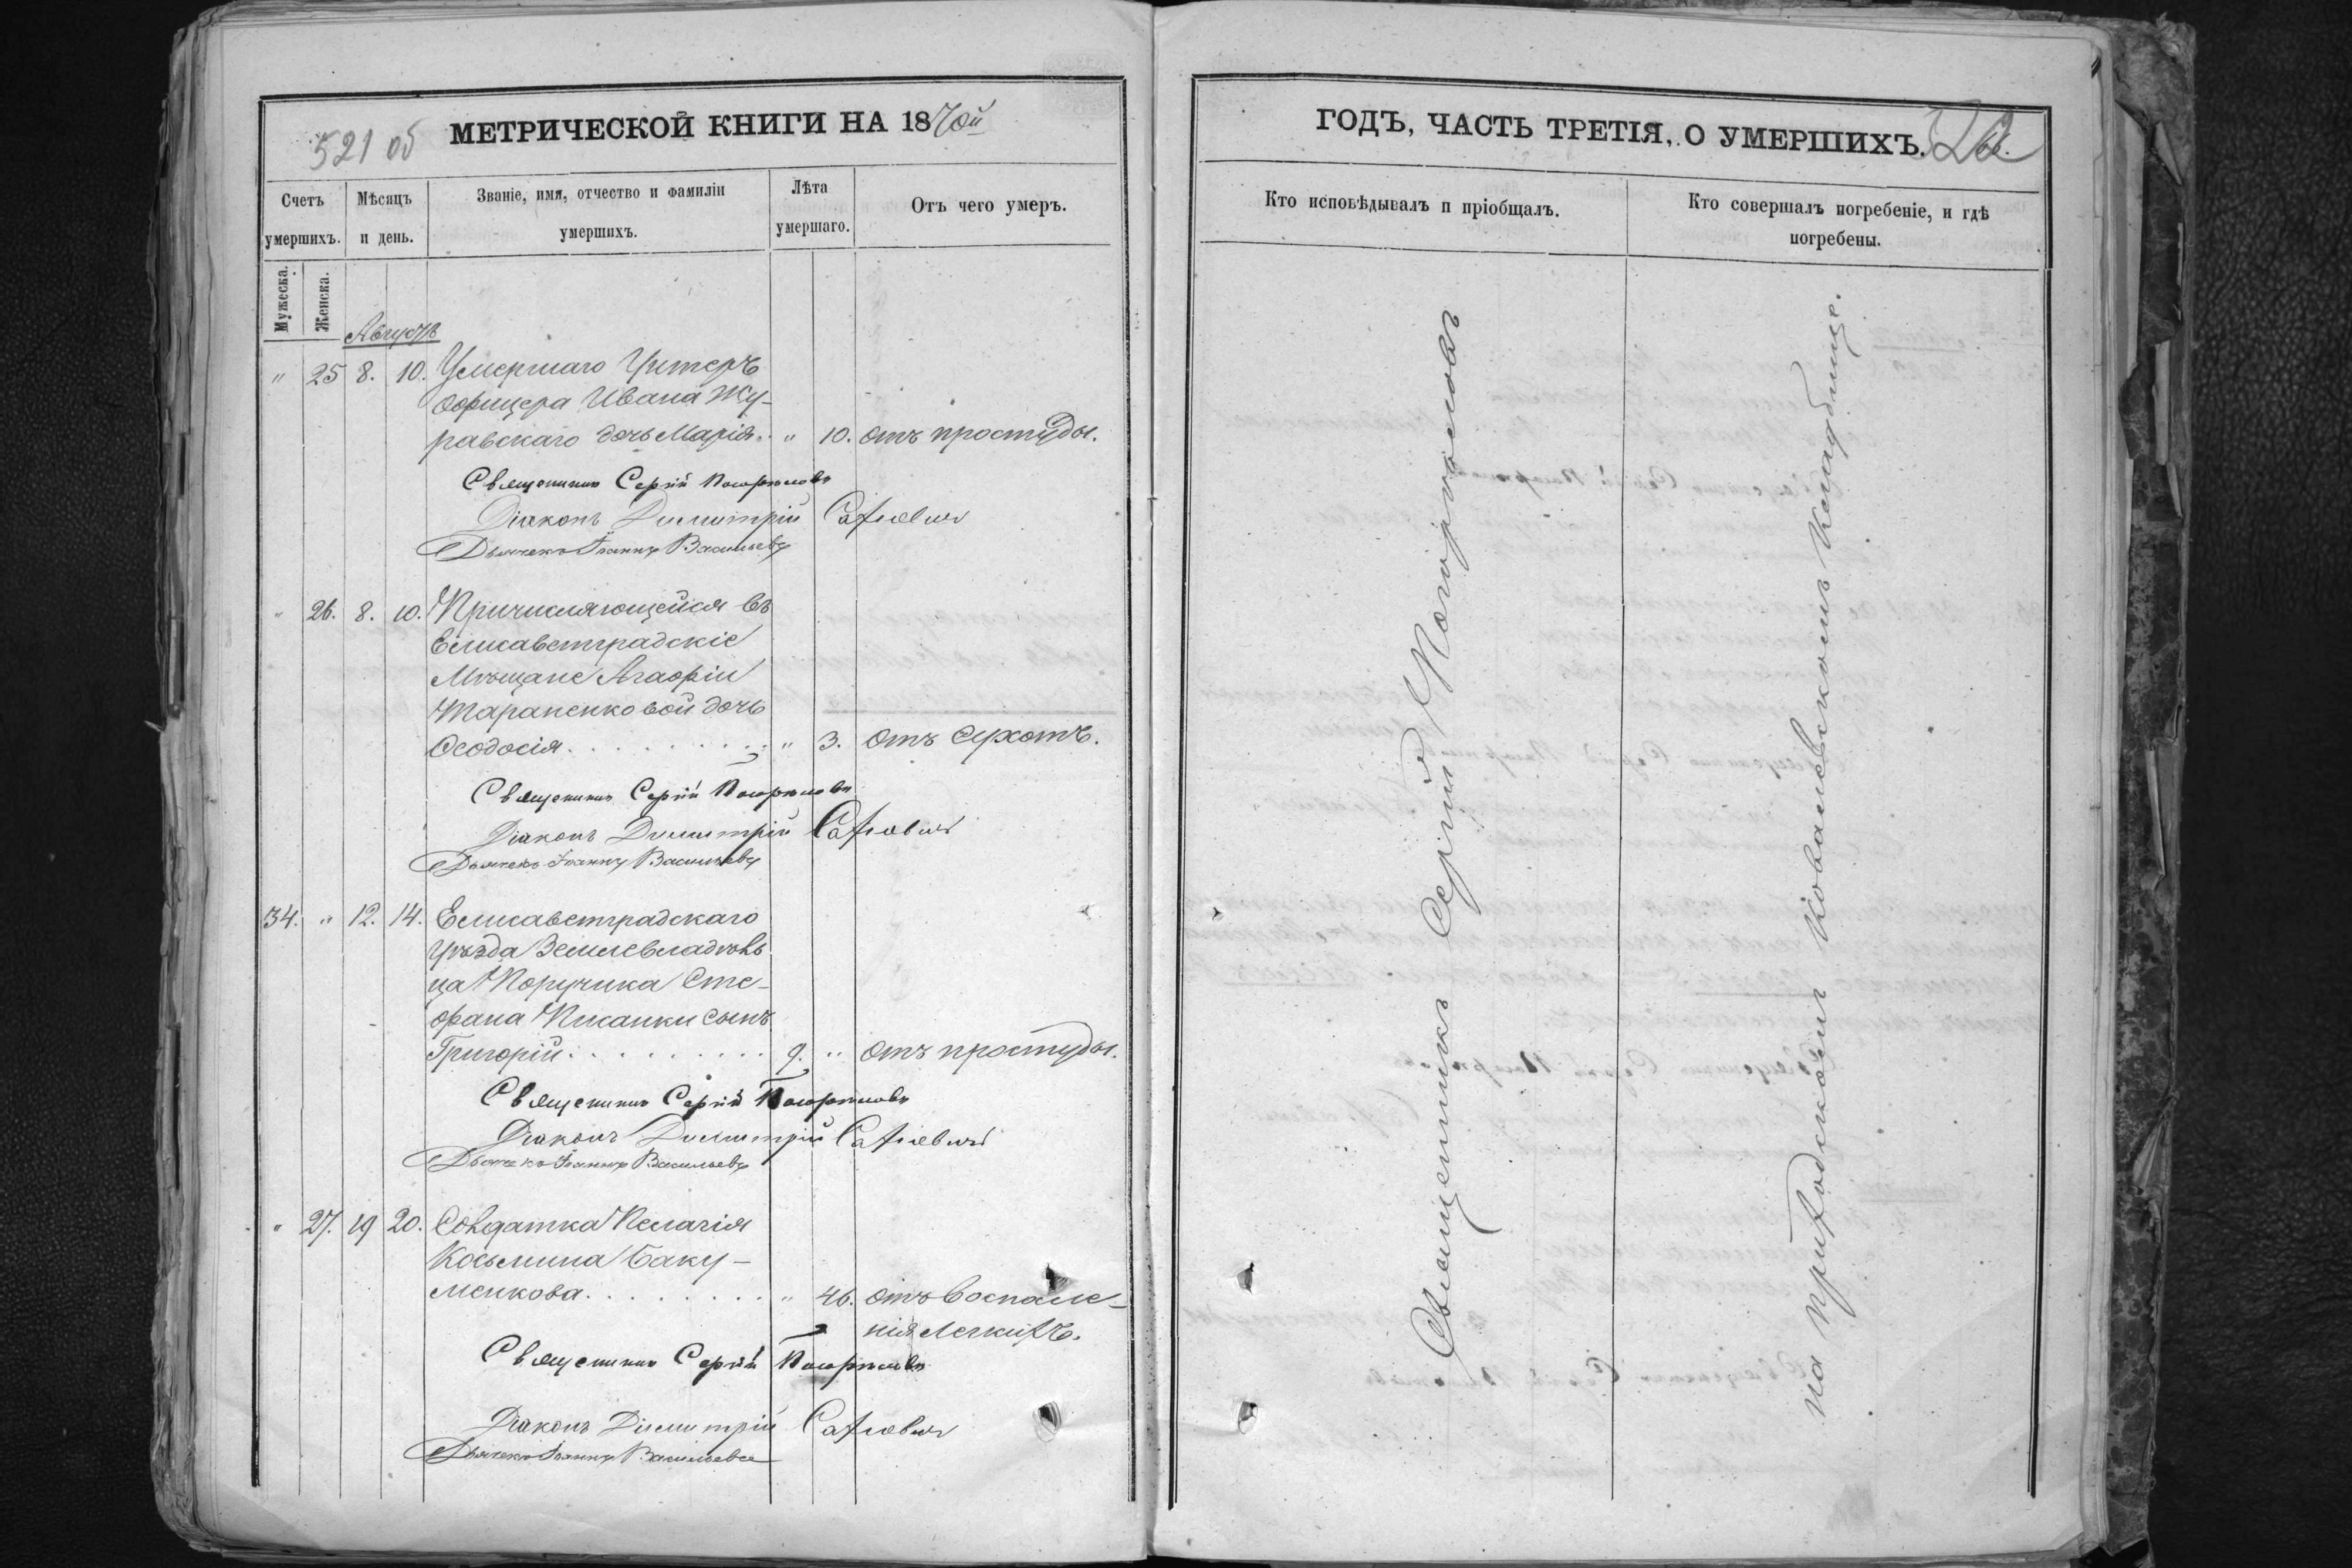 521 об
МЕТРИЧЕСКОЙ КНИГИ НА 1870й
Счетъ умершихъ.
Мѣсяцъ и день.
Званіе, имя, отчество и фамиліи умершихъ.
Лѣта умершаго.
Отъ чего умеръ.
Мужеска.
Женска.
Августъ
" 25 8. 10. Умершаго Унтеръ
офицера Ивана Жу-
равскаго дочь Марія. " 10. отъ простуды.
Священникъ Сергій Погорѣловъ
Діаконъ Димитрій Сахневичъ
Дьячекъ Іоаннъ Васильевъ
" 26. 8. 10. Причисляющейся въ
Елисаветградскіе
Мѣщане Агафіи
Тараненковой дочь
Ѳеодосія. " 3. отъ сухотъ.
Священникъ Сергій Погорѣловъ
Діаконъ Димитрій Сахневичъ
Дьячекъ Іоаннъ Васильевъ
34. " 12. 14. Елисаветградскаго
уѣзда Землевладѣль
ца Поручика Сте-
фана Писанки сынъ
Григорій. 9. " отъ простуды.
Священникъ Сергій Погорѣловъ
Діаконъ Димитрій Сахневичъ
Дьячекъ Іоаннъ Васильевъ
" 27. 19 20. Солдатка Пелагія
Косьмина Баку-
менкова. " 46. отъ воспале-
нія легкихъ.
Священникъ Сергій Погорѣловъ
Діаконъ Димитрій Сахневичъ
Дьячекъ Іоаннъ Васильевъ
ГОДЪ, ЧАСТЬ ТРЕТІЯ, О УМЕРШИХЪ.
522
Кто исповѣдывалъ и пріобщалъ.
Кто совершалъ погребеніе, и гдѣ
погребены.
Священникъ Сергій Погорѣловъ
на приходскомъ Ковалевскомъ Кладбище.